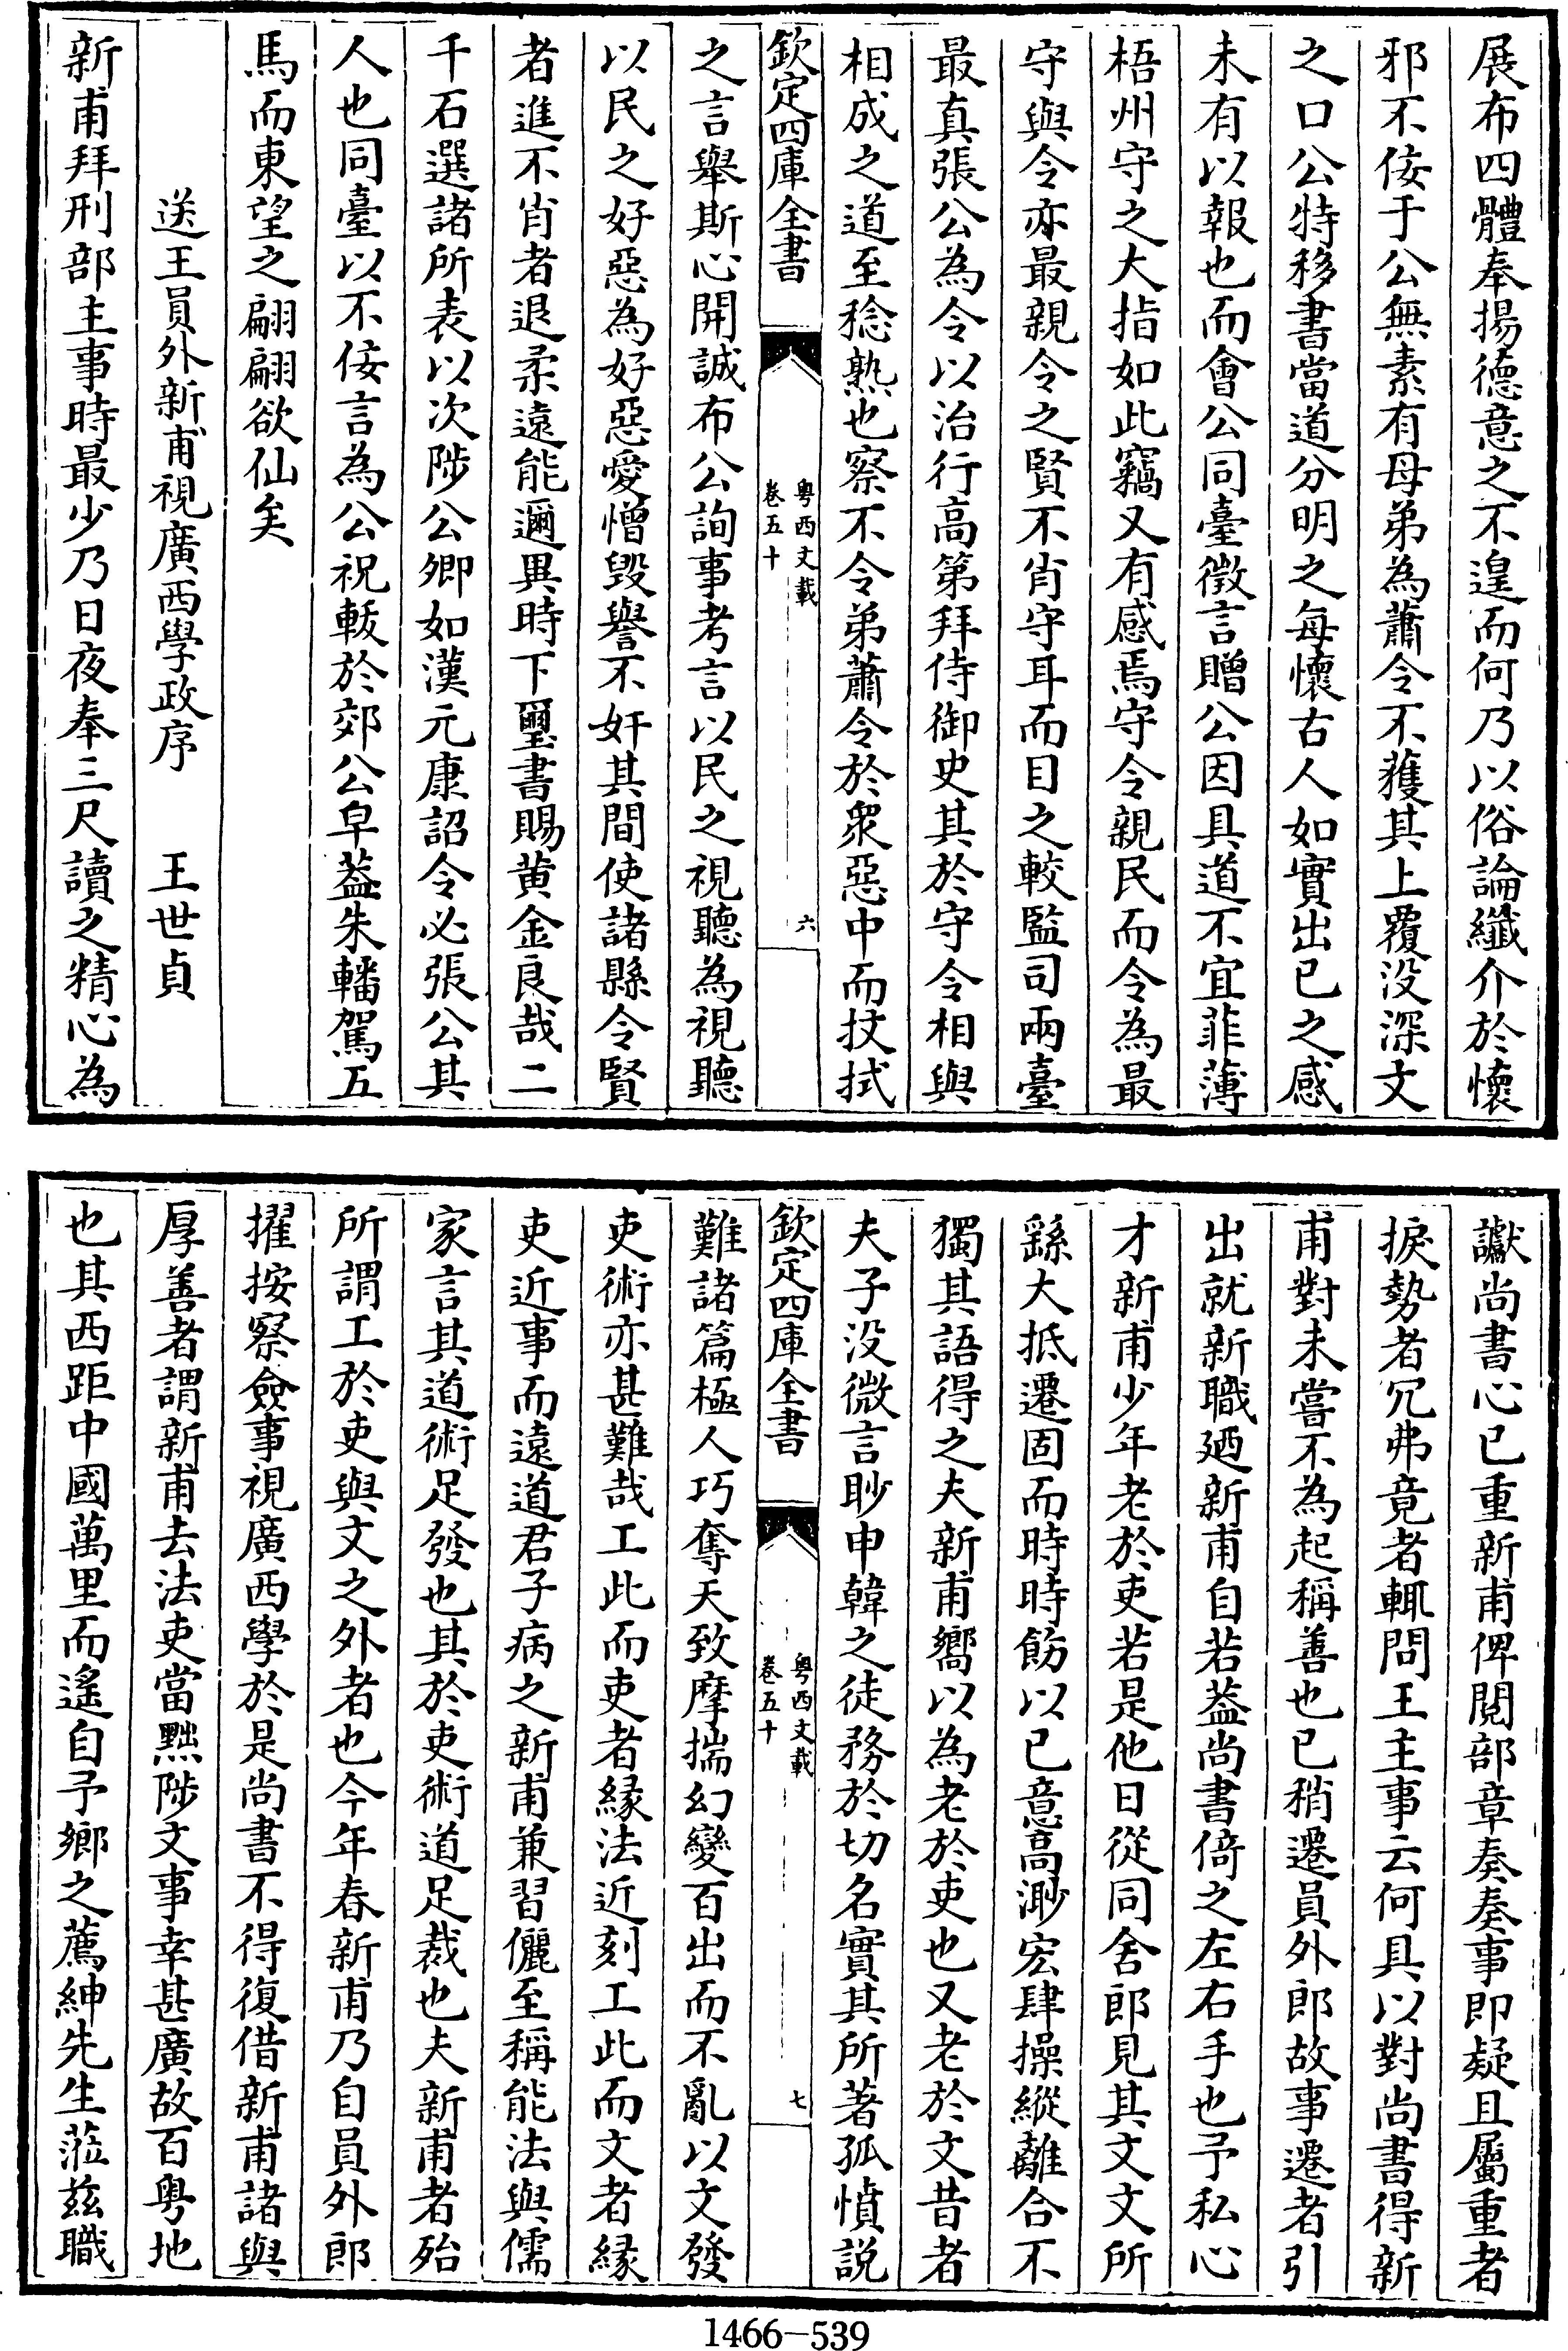 展布四體奉揚德意之不遑而何乃以俗論纖介於懷
邪不佞于公無素有母弟為蕭令不獲其上覆没深文
之口公特移書當道分明之每懷古人如實出已之感
未有以報也而會公同臺徵言贈公因具道不宜菲薄
梧州守之大指如此竊又有感焉守令親民而令為最
守與令亦最親令之賢不肖守耳而目之較監司兩臺
最真張公為令以治行高第拜侍御史其於守令相與
相成之道至稔熟也察不令弟蕭令於衆惡中而扙拭
欽定四庫全書
粤西文載
卷五十
六
之言舉斯心開誠布公詢事考言以民之視聽為視聽
以民之好惡為好惡愛憎毀譽不奸其間使諸縣令賢
者進不肖者退柔遠能邇異時下璽書賜黄金良哉二
千石選諸所表以次陟公卿如漢元康詔令必張公其
人也同臺以不佞言為公祝載於郊公皁葢朱轓駕五
馬而東望之翩翩欲仙矣
送王員外新甫視廣西學政序 王世貞
新甫拜刑部主事時最少乃日夜奉三尺讀之精心為
讞尚書心已重新甫俾閲部章奏奏事即疑且屬重者
捩勢者冗弗竟者輒問王主事云何具以對尚書得新
甫對未嘗不為起稱善也已稍遷員外郎故事遷者引
出就新職廼新甫自若葢尚書倚之左右手也予私心
才新甫少年老於吏若是他日從同舍郎見其文文所
繇大抵遷固而時時飭以已意高渺宏肆操縱離合不
獨其語得之夫新甫嚮以為老於吏也又老於文昔者
夫子没微言眇申韓之徒務於切名實其所著孤憤説
欽定四庫全書
粤西文載
卷五十
七
難諸篇極人巧奪天致摩揣幻變百出而不亂以文發
吏術亦甚難哉工此而吏者緣法近刻工此而文者緣
吏近事而遠道君子病之新甫兼習儷至稱能法與儒
家言其道術足發也其於吏術道足裁也夫新甫者殆
所謂工於吏與文之外者也今年春新甫乃自員外郎
擢按察僉事視廣西學於是尚書不得復借新甫諸與
厚善者謂新甫去法吏當黜陟文事幸甚廣故百粤地
也其西距中國萬里而遙自予鄉之薦紳先生蒞茲職
1466-539